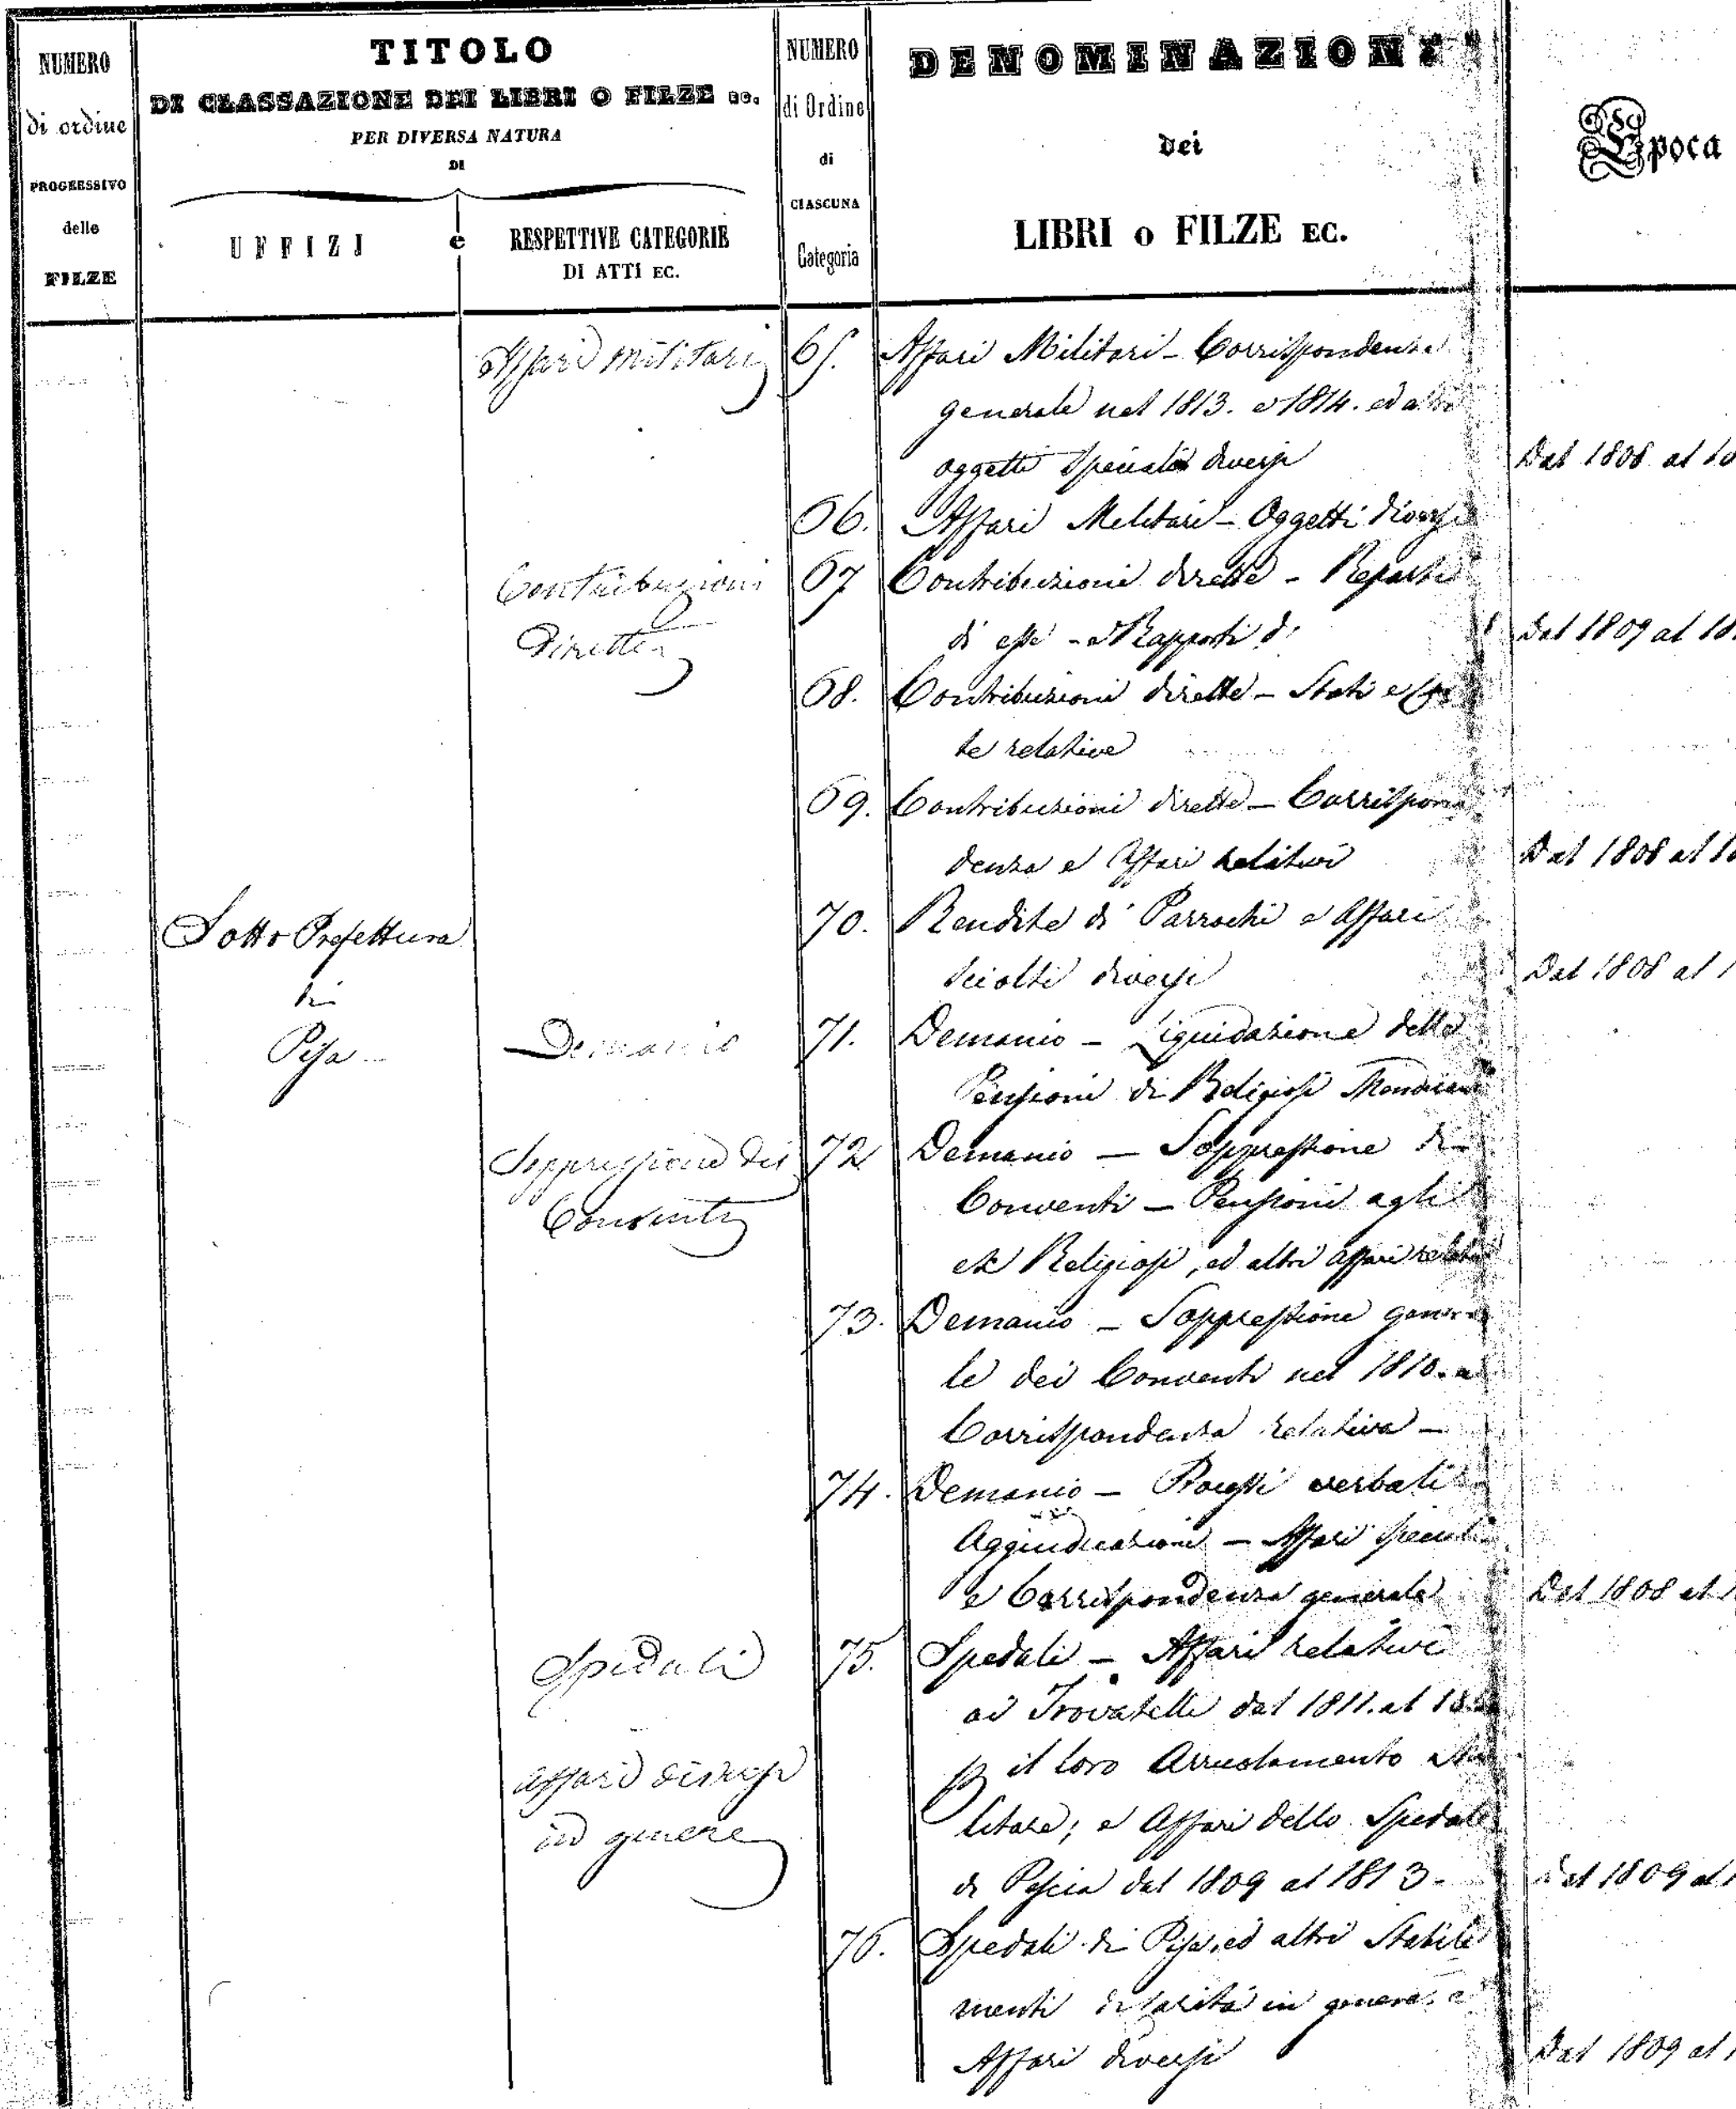 NUMERO
di ordine
PROGRESSIVO
delle
FILZE
TITOLO
DI CLASSAZIONE DEI LIBRI O FILZE ec.
PER DIVERSA NATURA
DI
UFFIZJ e RESPETTIVE CATEGORIE
DI ATTI EC.
NUMERO
di Ordine
di
CIASCUNA
Categoria
DENOMINAZIONI
Dei
LIBRI o FILZE EC.
Epoca
Affari Militari 65. Affari Militari - Corrispondenza
generale nel 1813. e 1814. ed altri
oggetti speciali diversi Dal 1808 al
66. Affari Militari - Oggetti diversi
Contribuzioni 67 Contribuzioni dirette - Reparti
Dirette di esse - e Rapporti di Dal 1809 al
68. Contribuzioni dirette - Stati e
te relative
69. Contribuzioni dirette - Corrispon
denza e Affari relativi Dal 1808 al
Sotto Prefettura 70. Rendite di Parrochi e Affari
di sciolti diversi Dal 1808 al
Pisa Demanio 71. Demanio - Liquidazione delle
Pensioni di Religiosi Mendicanti
Soppressione dei 72 Demanio - Soppressione di
Conventi Conventi - Pensioni agli
ex Religiosi, ed altri affari relativi
73. Demanio - Soppressione genera
le dei Conventi nel 1810. e
Corrispondenza relativa -
74. Demanio - Processi verbali
Aggiudicazioni - Affari speciali
e Corrispondenza generale Dal 1808 al
Spedali 75. Spedali - Affari relativi
ai Trovatelli dal 1811. al
Affari diversi p il loro Arruolamento Mi
in genere litare; e Affari dello Spedale
di Pescia dal 1809 al 1813 - Dal 1809 al
76. Spedali di Pisa, ed altri Stabili
menti di Carità in genere. e
Affari diversi Dal 1809 al